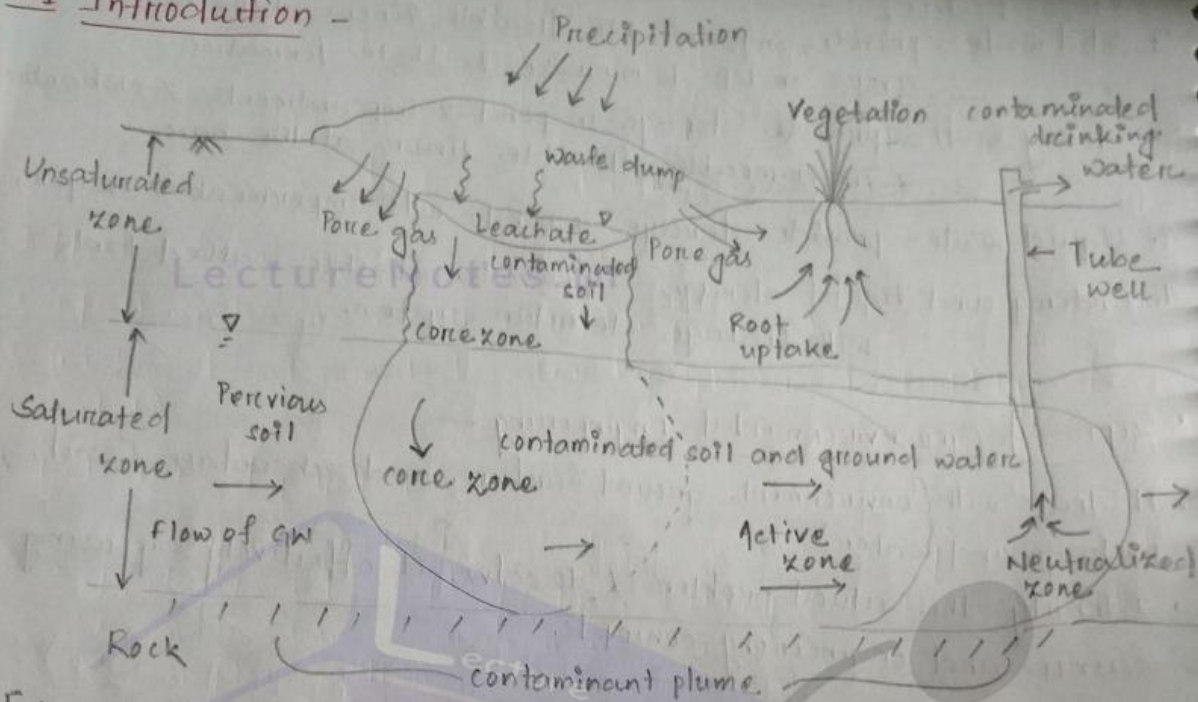 Introduction -
Precipitation
Vegetation
contaminated
drinking
water
Unsaturated
zone
waste dump
Pore gas
Leachate
contaminated
soil
Pore gas
Tube
well
LectureNotes
core zone
Root
uptake
Saturated
zone
Pervious
soil
core zone
contaminated soil and ground water
Flow of GW
Active
zone
Neutralized
zone
Rock
contaminant plume